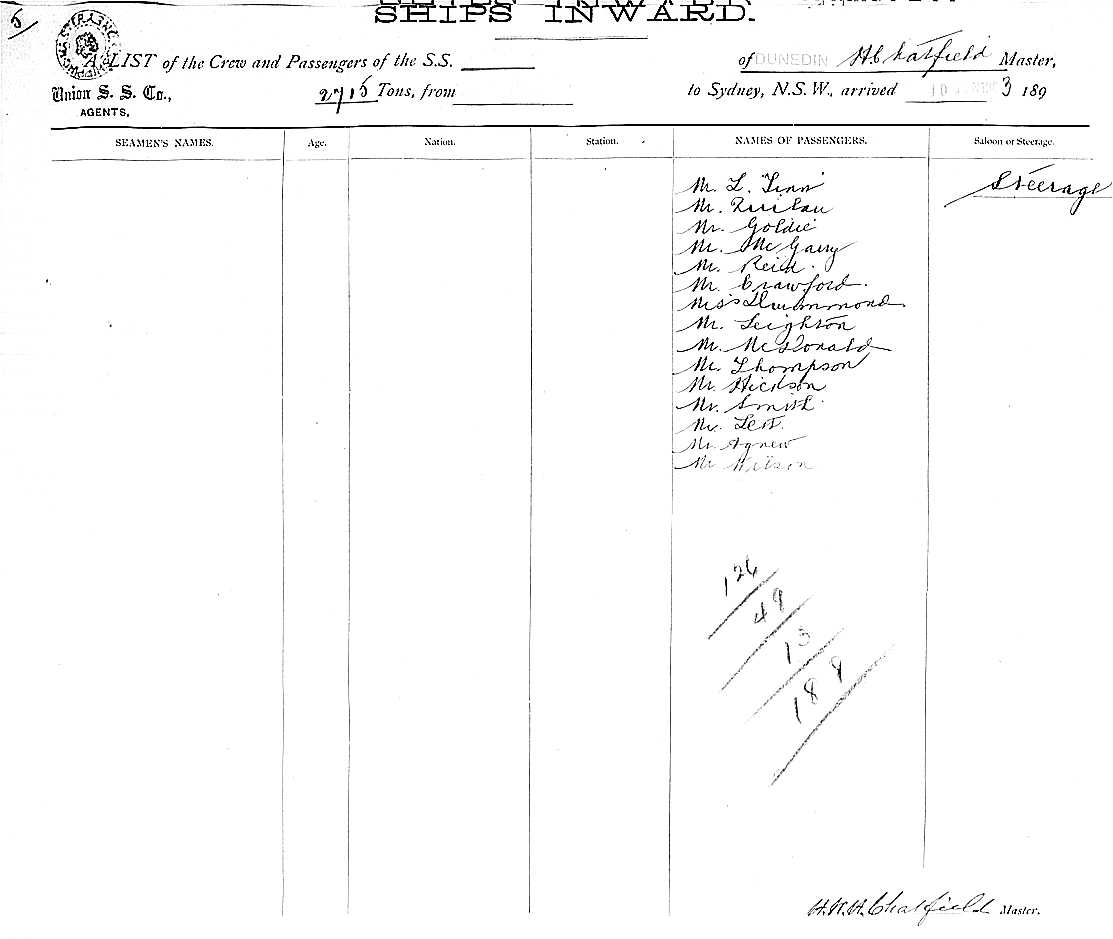 5
SHIPS INWARD.
A LIST of the Crew and Passengers of the S.S. of DUNEDIN Chatfield Master,
Union S. S. Co., AGENTS, 2715 Tons, from to Sydney, N.S.W., arrived 3 189
SEAMEN'S NAMES. Age. Nation. Station. NAMES OF PASSENGERS. Saloon or Steerage.
Mr. L. Steerage
Mr.
Mr. Goldie
Mr. McGarry
Mr. Reid.
Mr. Crawford.
Miss Drummond
Mr. Leighton
Mr. McDonald
Mr. Thompson
Mr. Hickson
Mr. Smith
Mr.
Mr. Agnew
Mr
126
49
13
188
Chatfield Master.